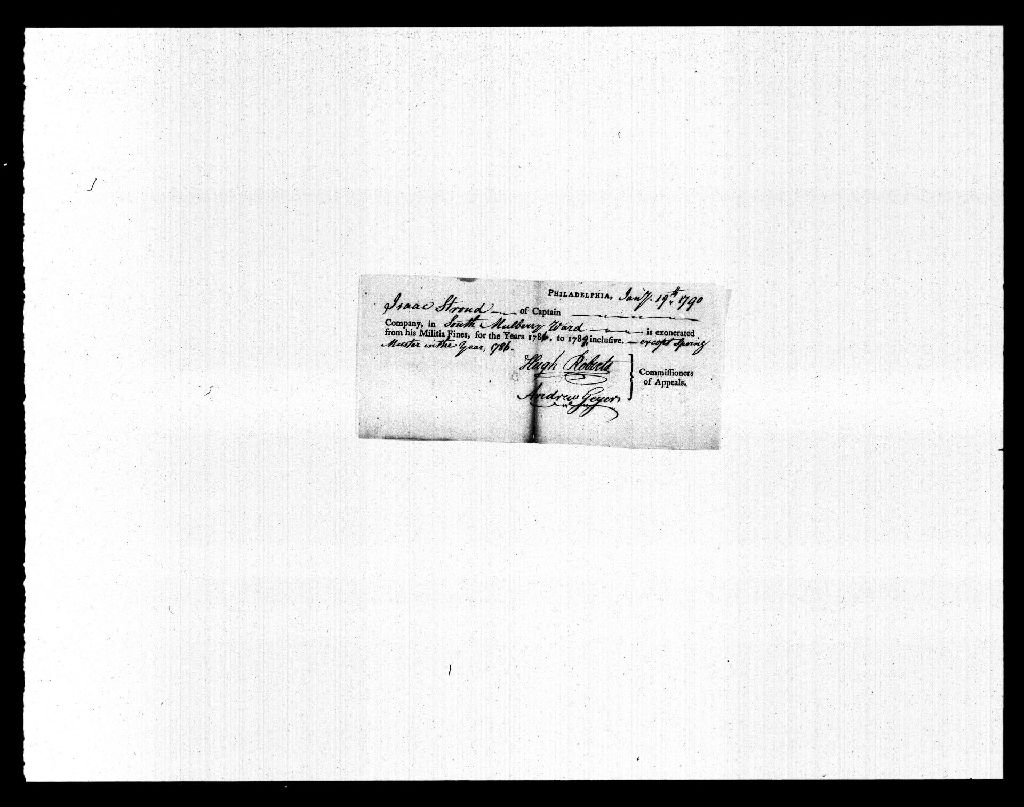 PHILADELPHIA, Jan'y. 19th. 1790
Isaac Stroud — of Captain
Company, in South Mulberry Ward — is exonerated
from his Militia Fines, for the Years 1786. to 1789 inclusive. — except Spring
Muster in the Year, 1786.
Hugh Roberts
Andrew Geyer
Commissioners
of Appeals.